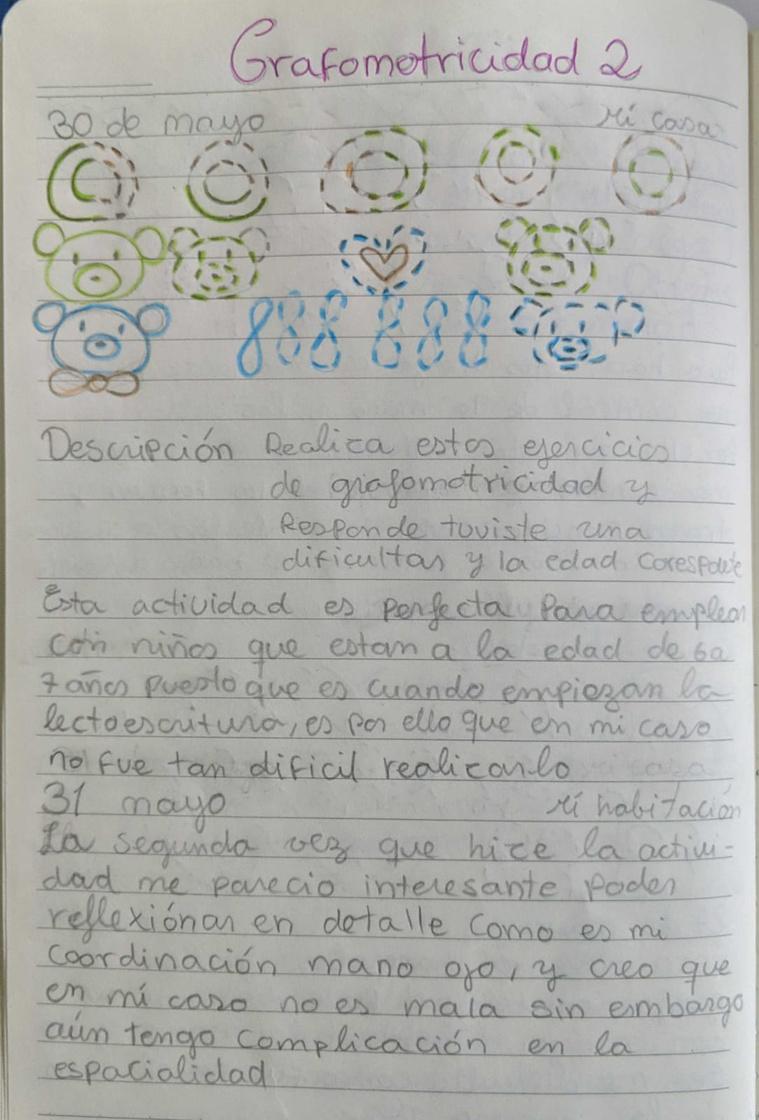 Grafomotricidad 2
30 de mayo Mi casa
888 888
Descripción Realiza estos ejercicios
de grafomotricidad y
Responde tuviste una
dificultas y la edad corresponde
Esta actividad es perfecta para emplear
con niños que estan a la edad de 6 a
7 años puesto que es cuando empiezan la
lectoescritura, es por ello que en mi caso
no fue tan dificil realizarlo
31 mayo Mi habitación
La segunda vez que hice la activi-
dad me parecio interesante poder
reflexiónar en detalle como es mi
coordinación mano ojo, y creo que
en mi caso no es mala sin embargo
aún tengo complicación en la
espacialidad